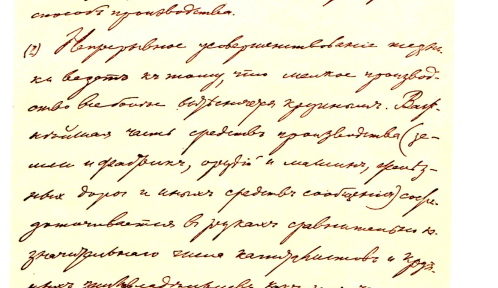 способъ производства.
(2) Непрерывное усовершенствованіе техни-
ки ведетъ къ тому, что мелкое производ-
ство все болѣе вытѣсняется крупнымъ. Важ-
нѣйшая часть средствъ производства (зе-
мли и фабрикъ, орудій и машинъ, желѣз-
ныхъ дорогъ и иныхъ средствъ сообщенія) сосре-
доточивается въ рукахъ сравнительно не-
значительнаго числа капиталистовъ и круп-
ныхъ землевладѣльцевъ, какъ